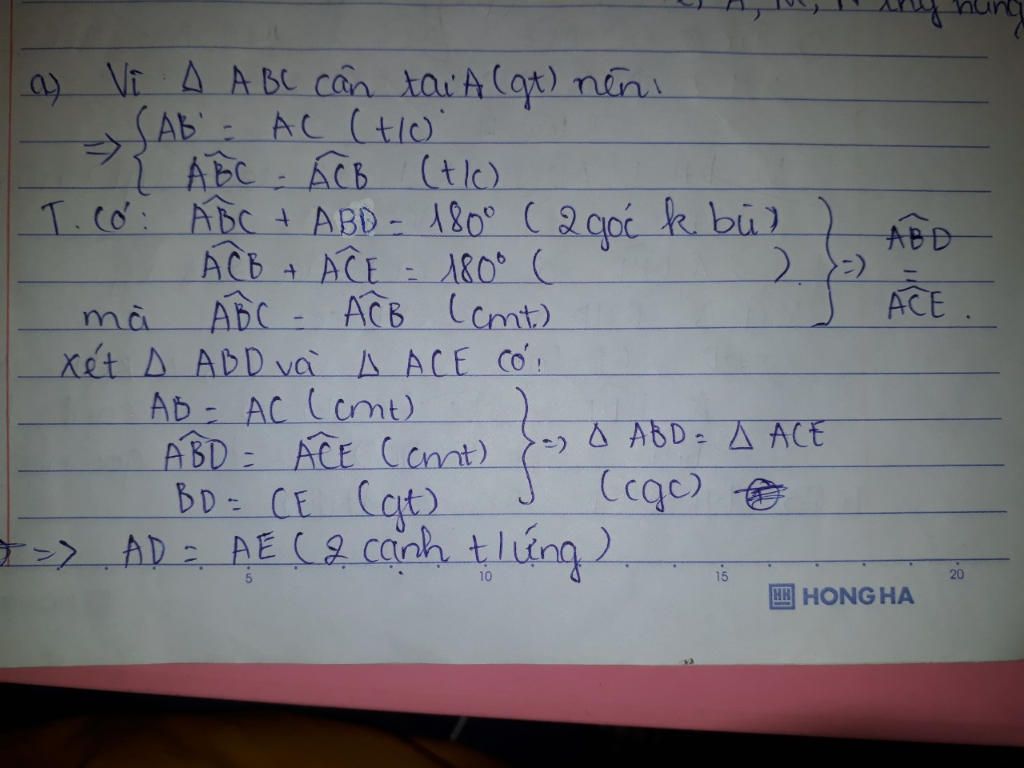 , A, M, N thẳng hàng
a) Vì Δ ABC cân tại A (gt) nên:
=> { AB = AC (t/c)
ABC^ = ACB^ (t/c)
T. có: ABC^ + ABD = 180° ( 2 góc k bù )
ACB^ + ACE^ = 180° ( ) } => ABD^ = ACE^ .
mà ABC^ = ACB^ (cmt)
Xét Δ ABD và Δ ACE có:
AB = AC (cmt)
ABD^ = ACE^ (cmt) } => Δ ABD = Δ ACE
BD = CE (gt) (cgc)
=> AD = AE ( 2 cạnh t/ứng )
5 10 15 20
HH HONG HA